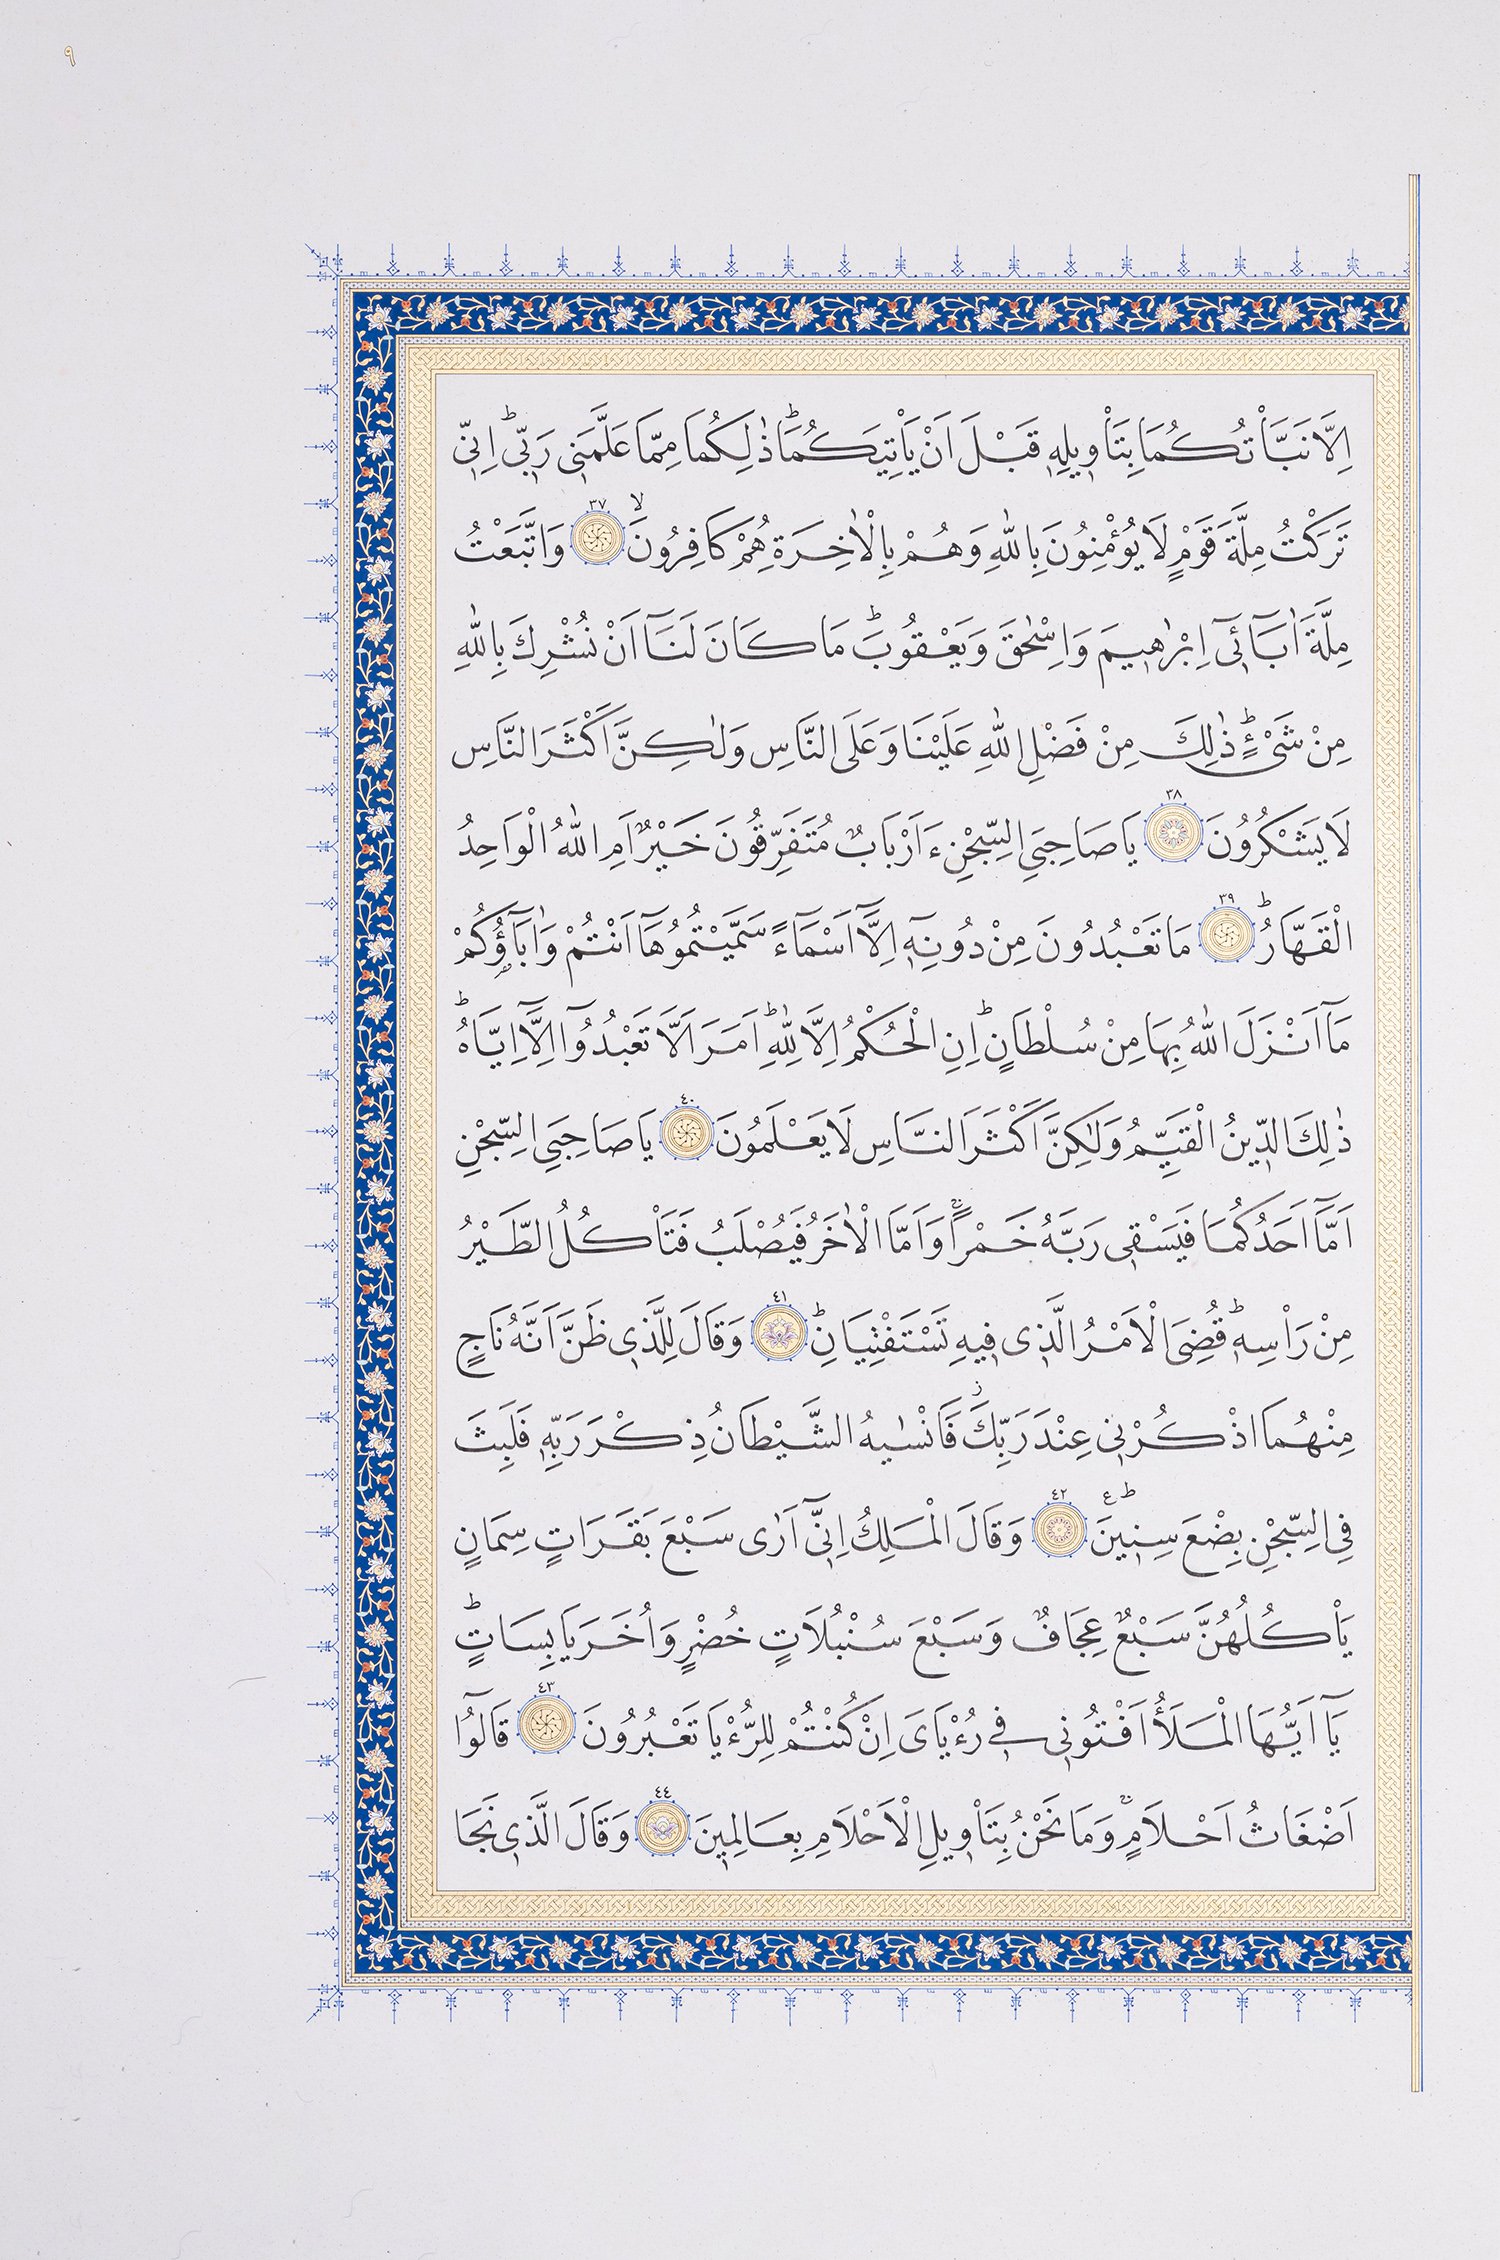 ٩
اِلَّا نَبَّأْتُكُمَا بِتَأْوٖيلِهٖ قَبْلَ اَنْ يَأْتِيَكُمَاۜ ذٰلِكُمَا مِمَّا عَلَّمَنٖي رَبّٖيۜ اِنّٖي
تَرَكْتُ مِلَّةَ قَوْمٍ لَا يُؤْمِنُونَ بِاللّٰهِ وَهُمْ بِالْاٰخِرَةِ هُمْ كَافِرُونَۙ ٣٧ وَاتَّبَعْتُ
مِلَّةَ اٰبَٓائٖٓي اِبْرٰهٖيمَ وَاِسْحٰقَ وَيَعْقُوبَۜ مَا كَانَ لَنَٓا اَنْ نُشْرِكَ بِاللّٰهِ
مِنْ شَيْءٍۜ ذٰلِكَ مِنْ فَضْلِ اللّٰهِ عَلَيْنَا وَعَلَى النَّاسِ وَلٰكِنَّ اَكْثَرَ النَّاسِ
لَا يَشْكُرُونَ ٣٨ يَا صَاحِبَيِ السِّجْنِ ءَاَرْبَابٌ مُتَفَرِّقُونَ خَيْرٌ اَمِ اللّٰهُ الْوَاحِدُ
الْقَهَّارُۜ ٣٩ مَا تَعْبُدُونَ مِنْ دُونِهٖٓ اِلَّٓا اَسْمَٓاءً سَمَّيْتُمُوهَٓا اَنْتُمْ وَاٰبَٓاؤُ۬كُمْ
مَٓا اَنْزَلَ اللّٰهُ بِهَا مِنْ سُلْطَانٍۜ اِنِ الْحُكْمُ اِلَّا لِلّٰهِۜ اَمَرَ اَلَّا تَعْبُدُٓوا اِلَّٓا اِيَّاهُۜ
ذٰلِكَ الدّٖينُ الْقَيِّمُ وَلٰكِنَّ اَكْثَرَ النَّاسِ لَا يَعْلَمُونَ ٤٠ يَا صَاحِبَيِ السِّجْنِ
اَمَّٓا اَحَدُكُمَا فَيَسْقٖي رَبَّهُ خَمْرًاۚ وَاَمَّا الْاٰخَرُ فَيُصْلَبُ فَتَأْكُلُ الطَّيْرُ
مِنْ رَأْسِهٖۜ قُضِيَ الْاَمْرُ الَّذٖي فٖيهِ تَسْتَفْتِيَانِۜ ٤١ وَقَالَ لِلَّذٖي ظَنَّ اَنَّهُ نَاجٍ
مِنْهُمَا اذْكُرْنٖي عِنْدَ رَبِّكَۘ فَاَنْسٰيهُ الشَّيْطَانُ ذِكْرَ رَبِّهٖ فَلَبِثَ
فِي السِّجْنِ بِضْعَ سِنٖينَۜ ع ٤٢ وَقَالَ الْمَلِكُ اِنّٖٓي اَرٰى سَبْعَ بَقَرَاتٍ سِمَانٍ
يَأْكُلُهُنَّ سَبْعٌ عِجَافٌ وَسَبْعَ سُنْبُلَاتٍ خُضْرٍ وَاُخَرَ يَابِسَاتٍۜ
يَٓا اَيُّهَا الْمَلَأُ اَفْتُونٖي فٖي رُءْيَايَ اِنْ كُنْتُمْ لِلرُّءْيَا تَعْبُرُونَ ٤٣ قَالُٓوا
اَضْغَاثُ اَحْلَامٍۚ وَمَا نَحْنُ بِتَأْوٖيلِ الْاَحْلَامِ بِعَالِمٖينَ ٤٤ وَقَالَ الَّذٖي نَجَا